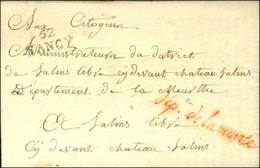 Aux Citoyens
52
NANCY
administrateurs du district
de Salins libre cydevant chateau Salins
Département de la Meurthe
Dep.t de la meurte
A Salins libre
Cydevant chateau Salins